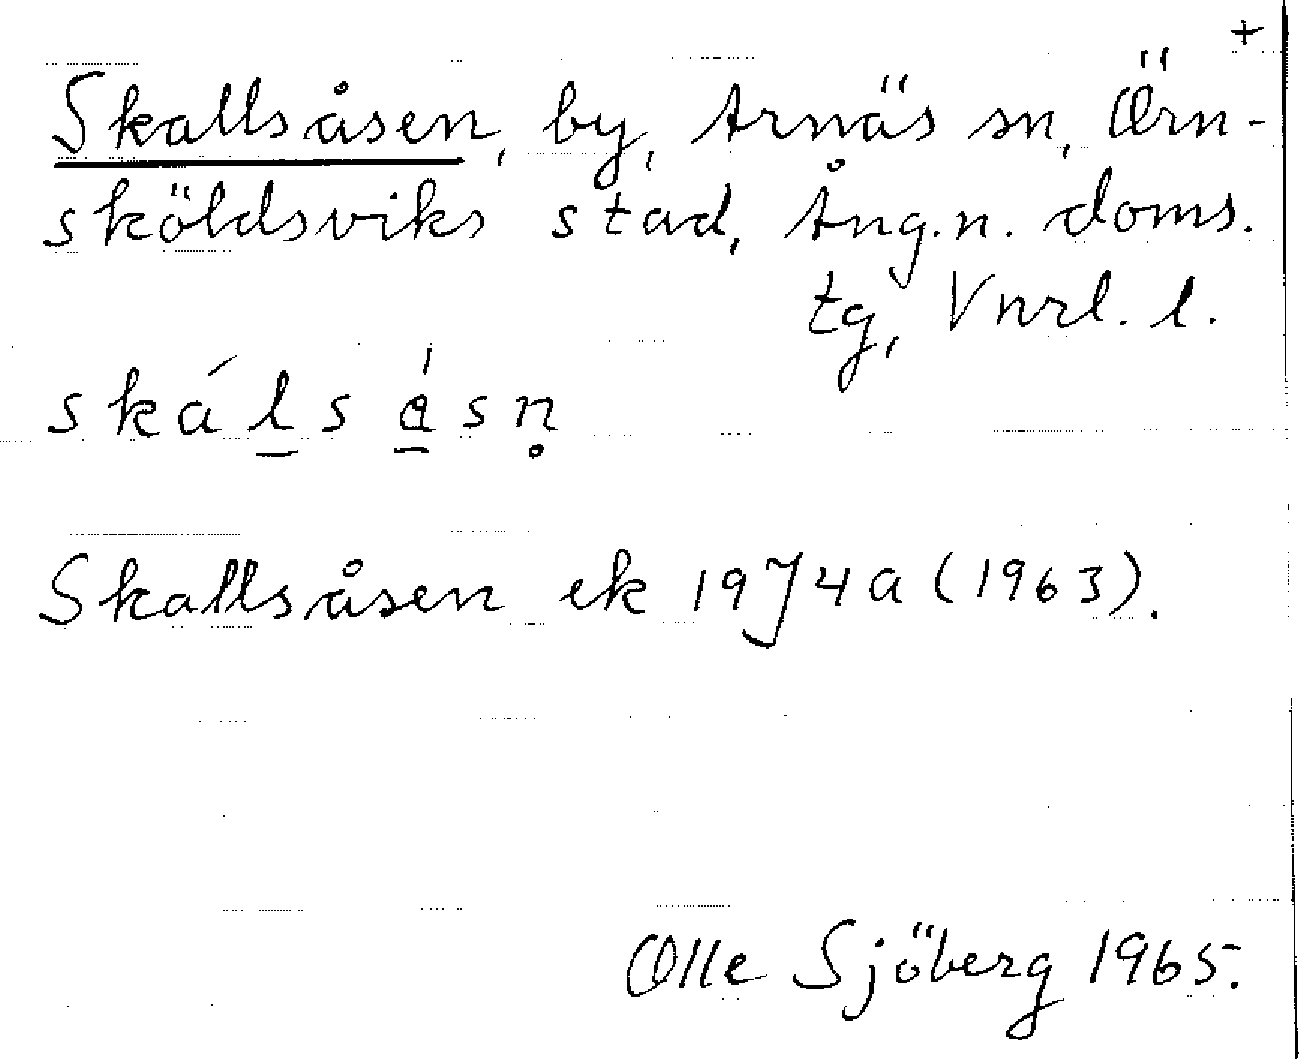 +
Skallsåsen, by, Arnäs sn, Örn-
sköldsviks stad, Ång.n. doms.
tg, Vnrl. l.
skáḻsǻ̱sn̥
Skallsåsen ek 19J4a (1963).
Olle Sjöberg 1965.